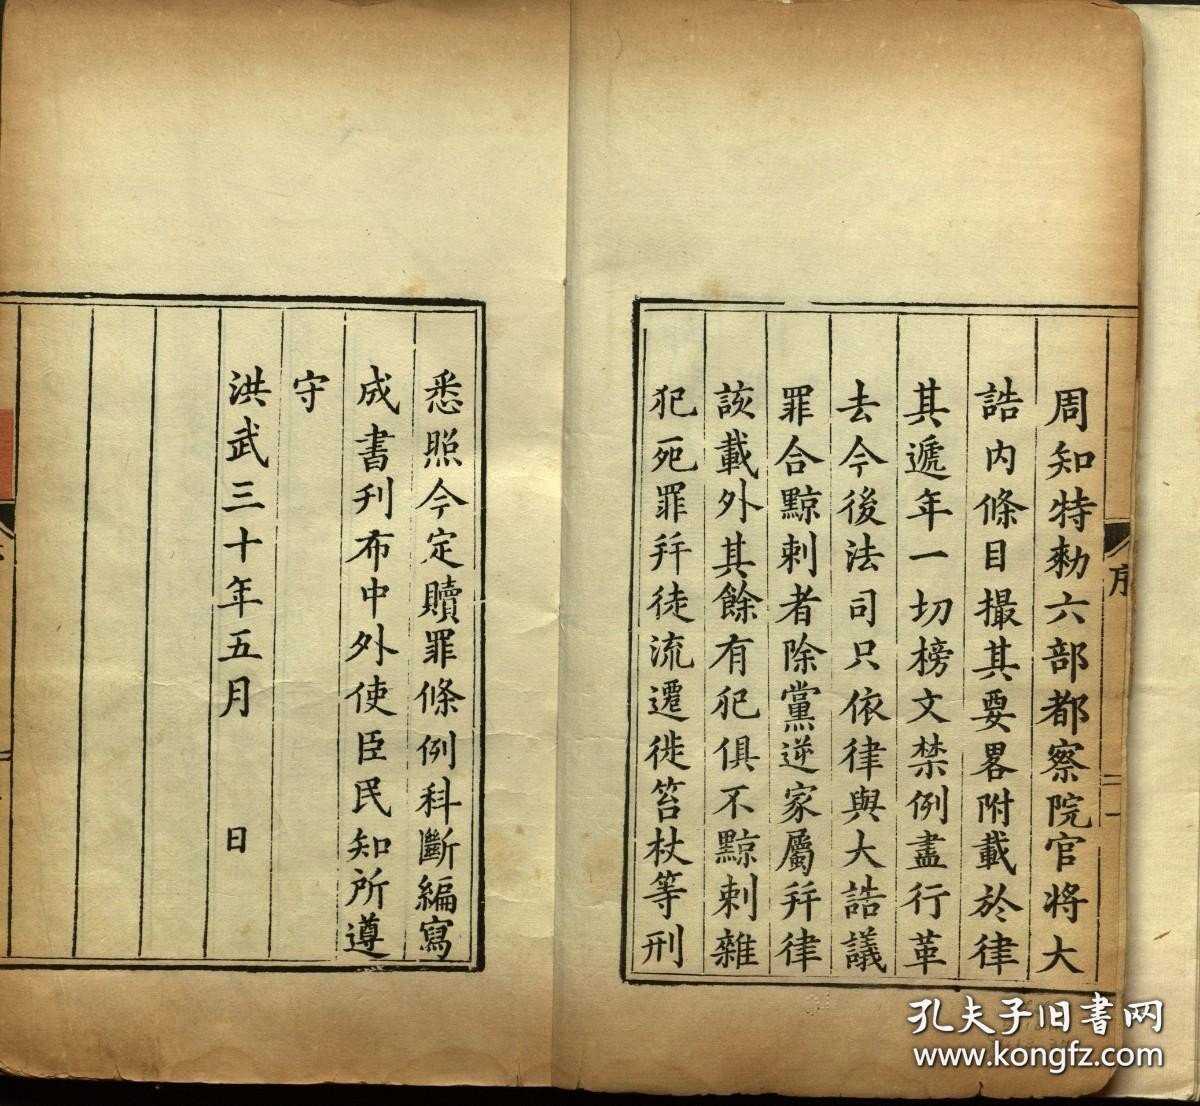 周知特勑六部都察院官将大
誥内條目撮其要畧附載於律
其遞年一切榜文禁例盡行革
去今後法司只依律與大誥議
罪合黥刺者除黨逆家屬幷律
該載外其餘有犯俱不黥刺雜
犯死罪幷徒流遷徙笞杖等刑
悉照今定贖罪條例科斷編寫
成書刊布中外使臣民知所遵
守
洪武三十年五月 日
序
二
孔夫子旧书网
www.kongfz.com